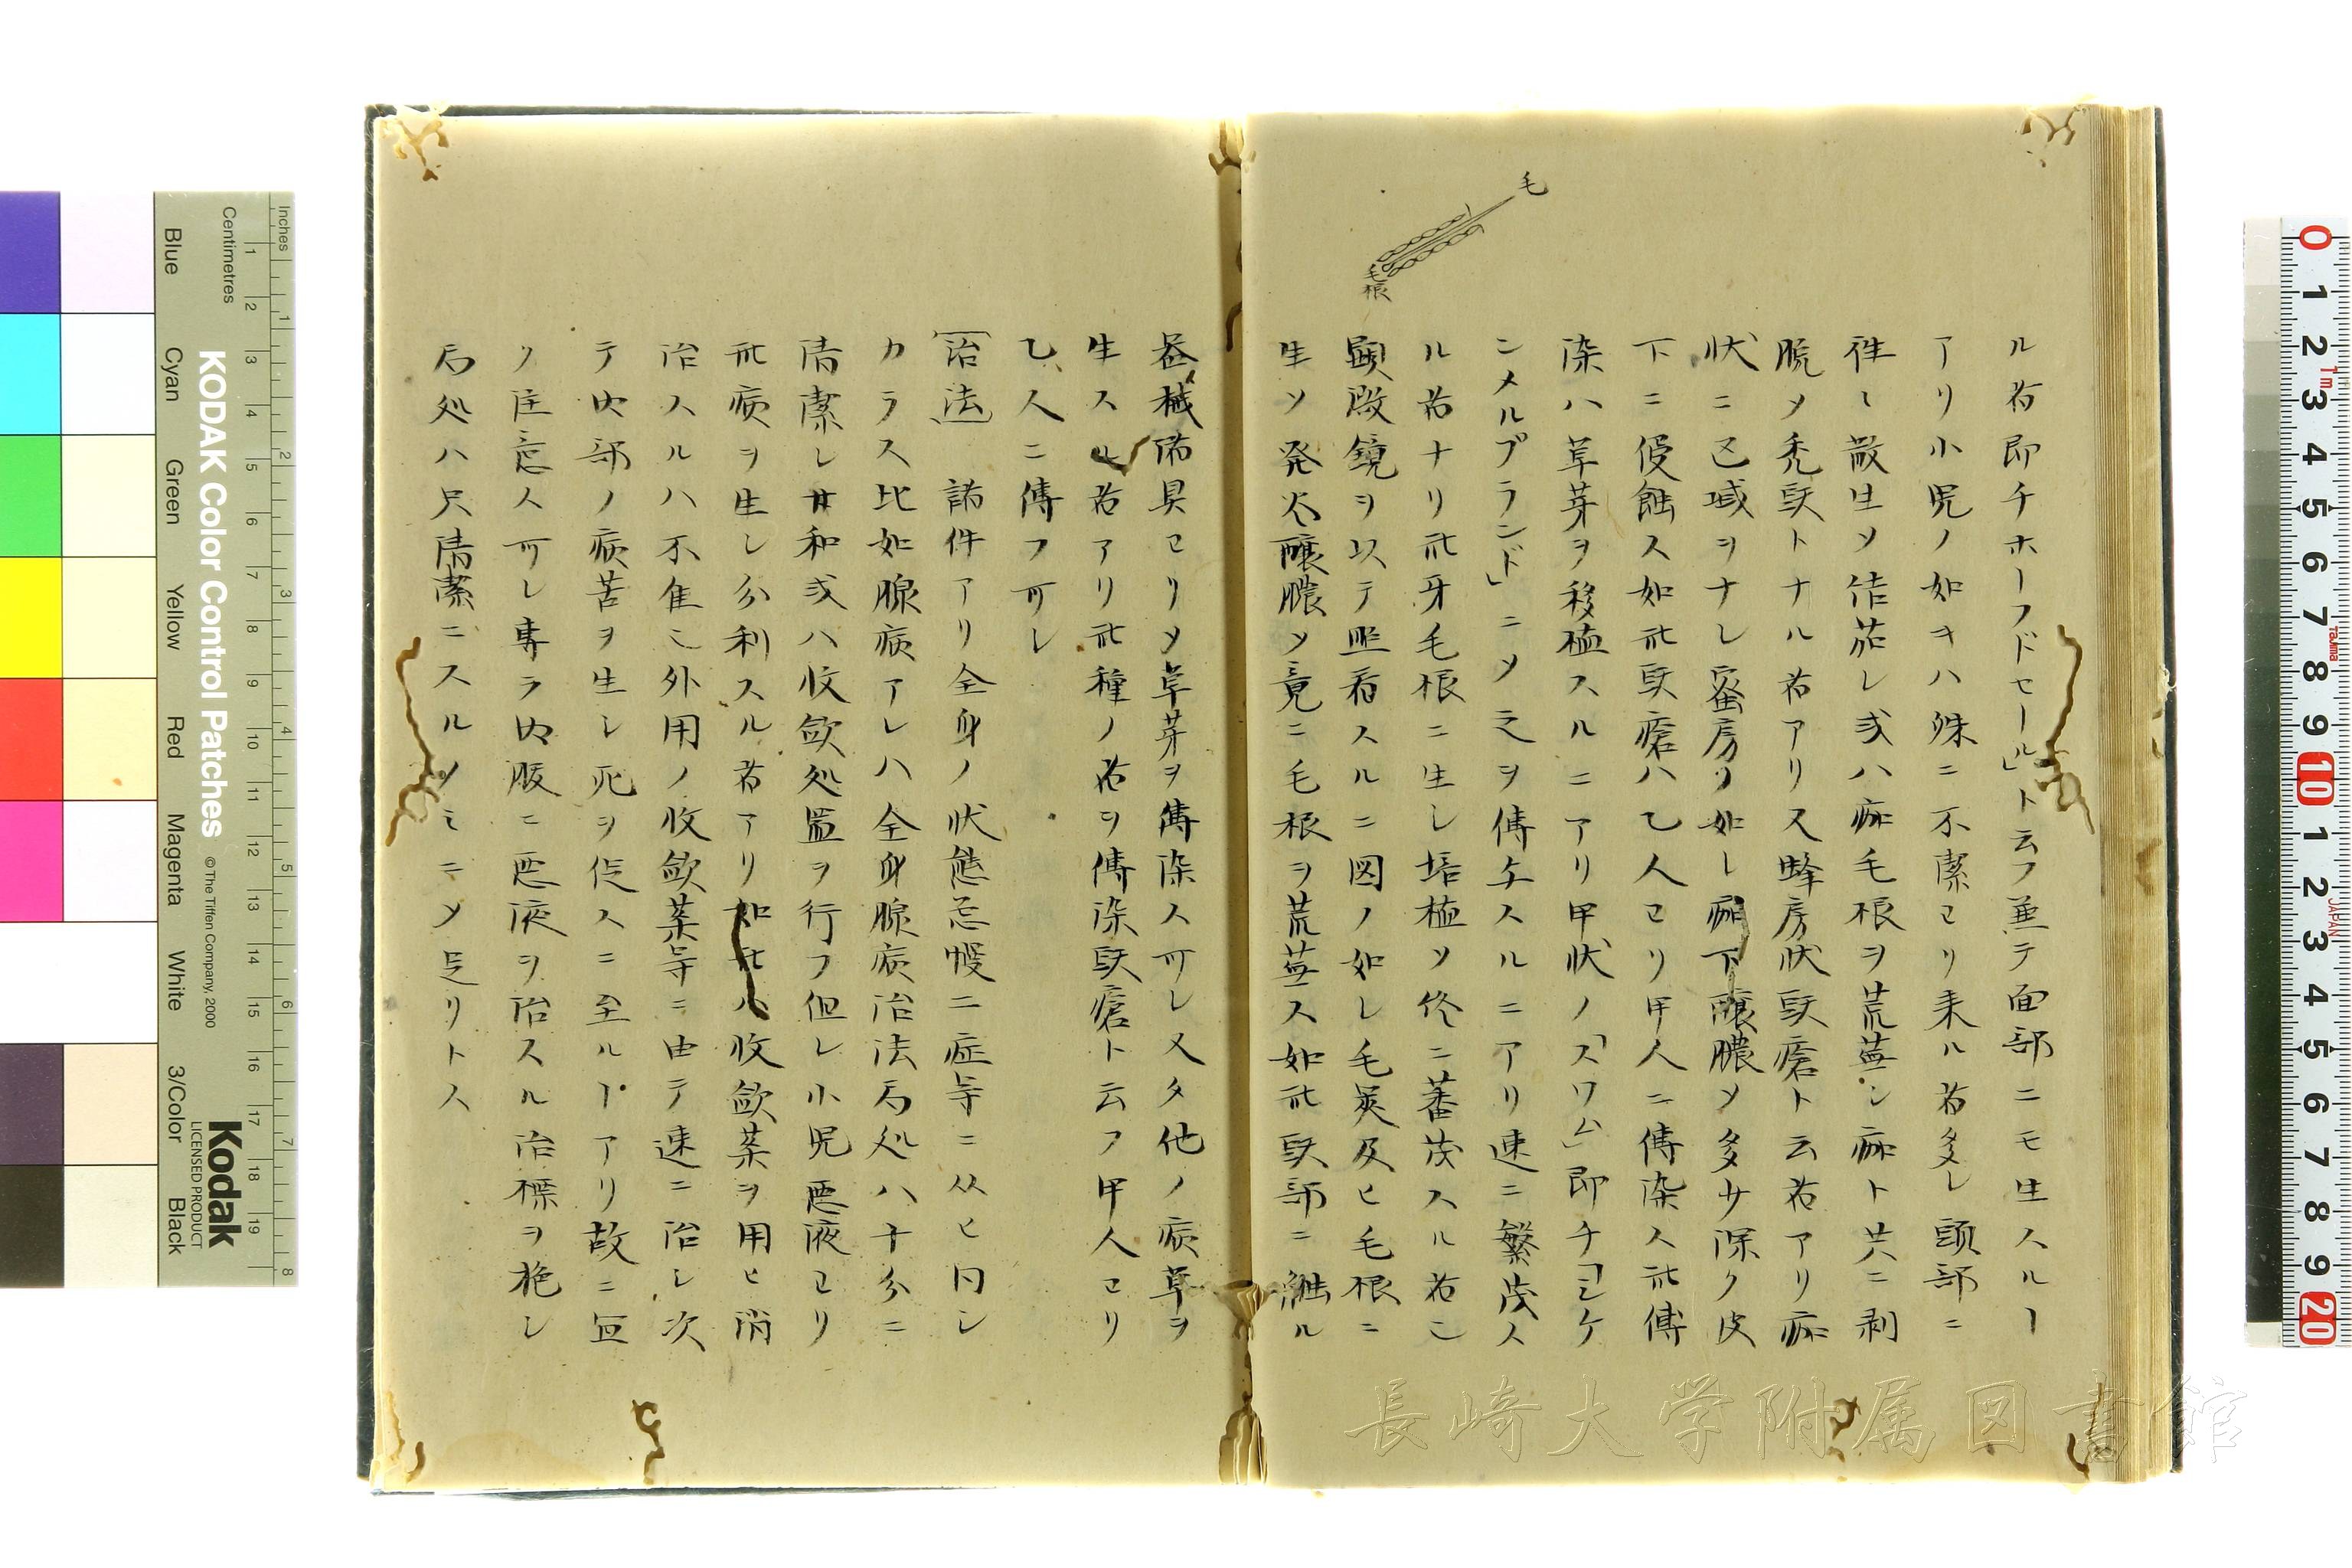 毛
毛根
ル者即チホーフドセール」ト云フ並テ面部ニモ生スルヿ
アリ小児ノ如キハ殊ニ不潔ヨリ来ル者多シ頭部ニ
往々散生シ結痂シ或ハ痂毛根ヲ荒蕪シ痂ト共ニ剥
脱メ禿頭トナル者アリ又蜂房状頭瘡ト云者アリ痂
状ニ区域ヲナシ蜜房ノ如シ痂下醸膿メ多サ深ク皮
下ニ侵蝕ス如此頭瘡ハ乙人ヨリ甲人ニ傳染ス此傳
染ハ草芽ヲ移植スルニアリ甲状ノ「スワム」即チ「ミケ
ンメルプランド」ニメ之ヲ傳与スルニアリ速ニ繁茂ス
ル者ナリ此牙毛根ニ生シ培植ソ終ニ蕃茂スル者ニ
顕微鏡ヲ以テ照看スルニ図ノ如シ毛莢及ヒ毛根ニ
生ソ発炎醸膿メ竟ニ毛根ヲ荒蕪ス如此頭部ニ触ル
器械諸具ヨリメ草芽ヲ傳染ス可シ又タ他ノ病草ヲ
生スル者アリ此種ノ者ヲ傳染頭瘡ト云フ甲人ヨリ
乙人ニ傳フ可シ
治法 諸件アリ全身ノ状態急慢ニ症等ニ从ヒ同シ
カラス比如腺病アレハ全身腺病治法局処ハ十分ニ
清潔シ甘和或ハ收斂処置ヲ行フ但シ小児悪液ヨリ
此病ヲ生シ分利スル者アリ如此ハ收斂薬ヲ用ヒ消
治スルハ不隹ニ外用ノ收斂薬等ニ由テ速ニ治シ次
テ内部ノ病苦ヲ生シ死ヲ促スニ至ルヿアリ故ニ宜
ノ注意ス可シ専ラ内服ニ悪液ヲ治スル治標ヲ施シ
局処ハ只清潔ニスルノミニメ足リトス
Inches
Centimetres
KODAK Color Control Patches
© The Tiffen Company, 2000
Kodak
LICENSED PRODUCT
Blue
Cyan
Green
Yellow
Red
Magenta
White
3/Color
Black
長崎大学附属図書館